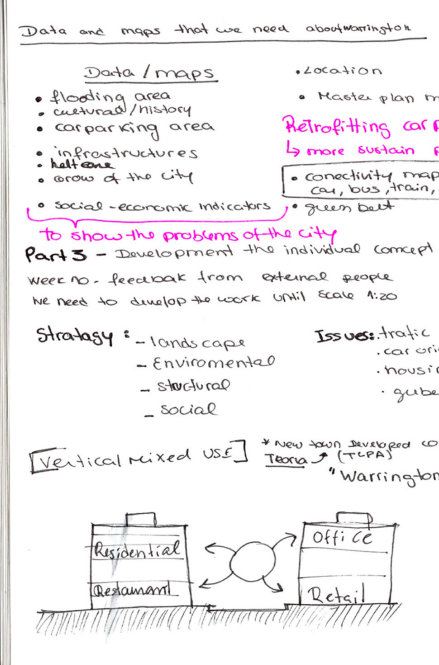 Data and maps that we need about warrington
Data / maps
• flooding area
• cultural / history
• carparking area
• infrastructures
• grow of the city
• social - economic indicators
• Location
• Master plan m
Retrofitting car p
↳ more sustain
• conectivity map
car, bus, train,
• green belt
To show the problems of the city
Part 3 - Development the individual concept
week 10 - feedbak from external people
we need to develop the work until scale 1:20
Stratagy : - landscape
- Enviromental
- structural
- social
Issues: trafic
. car ori
. housi
[Vertical mixed USE]
* New town Developed co
Teoria ↗ (TCPA)
"Warrington
Residential
Restaurant
Office
Retail